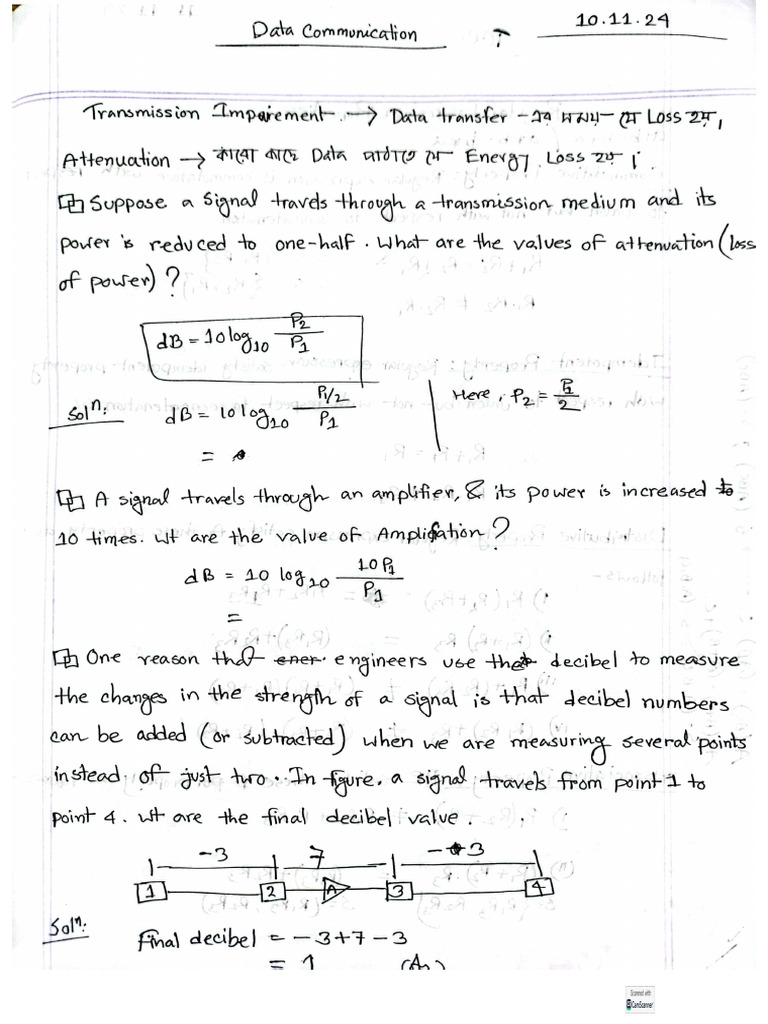 Data Communication
10.11.24
Transmission Impairement. → Data transfer -এর সময় যে Loss হয়,
Attenuation → কারো কাছে Data পাঠাতে যে Energy Loss হয়।
Suppose a signal travels through a transmission medium and its
power is reduced to one-half. What are the values of attenuation (loss
of power)?
dB = 10 log10 P2/P1
Soln: dB = 10 log10 P1/2 / P1
Here, P2 = P1/2
=
A signal travels through an amplifier, & its power is increased to
10 times. Wt are the value of Amplification?
dB = 10 log10 10P1/P1
=
One reason that engineers use that decibel to measure
the changes in the strength of a signal is that decibel numbers
can be added (or subtracted) when we are measuring several points
instead of just two. In figure. a signal travels from point 1 to
point 4. Wt are the final decibel value.
-3 7 -3
1 2 A 3 4
Soln: Final decibel = -3+7-3
= 1 (An)
Scanned with
CamScanner